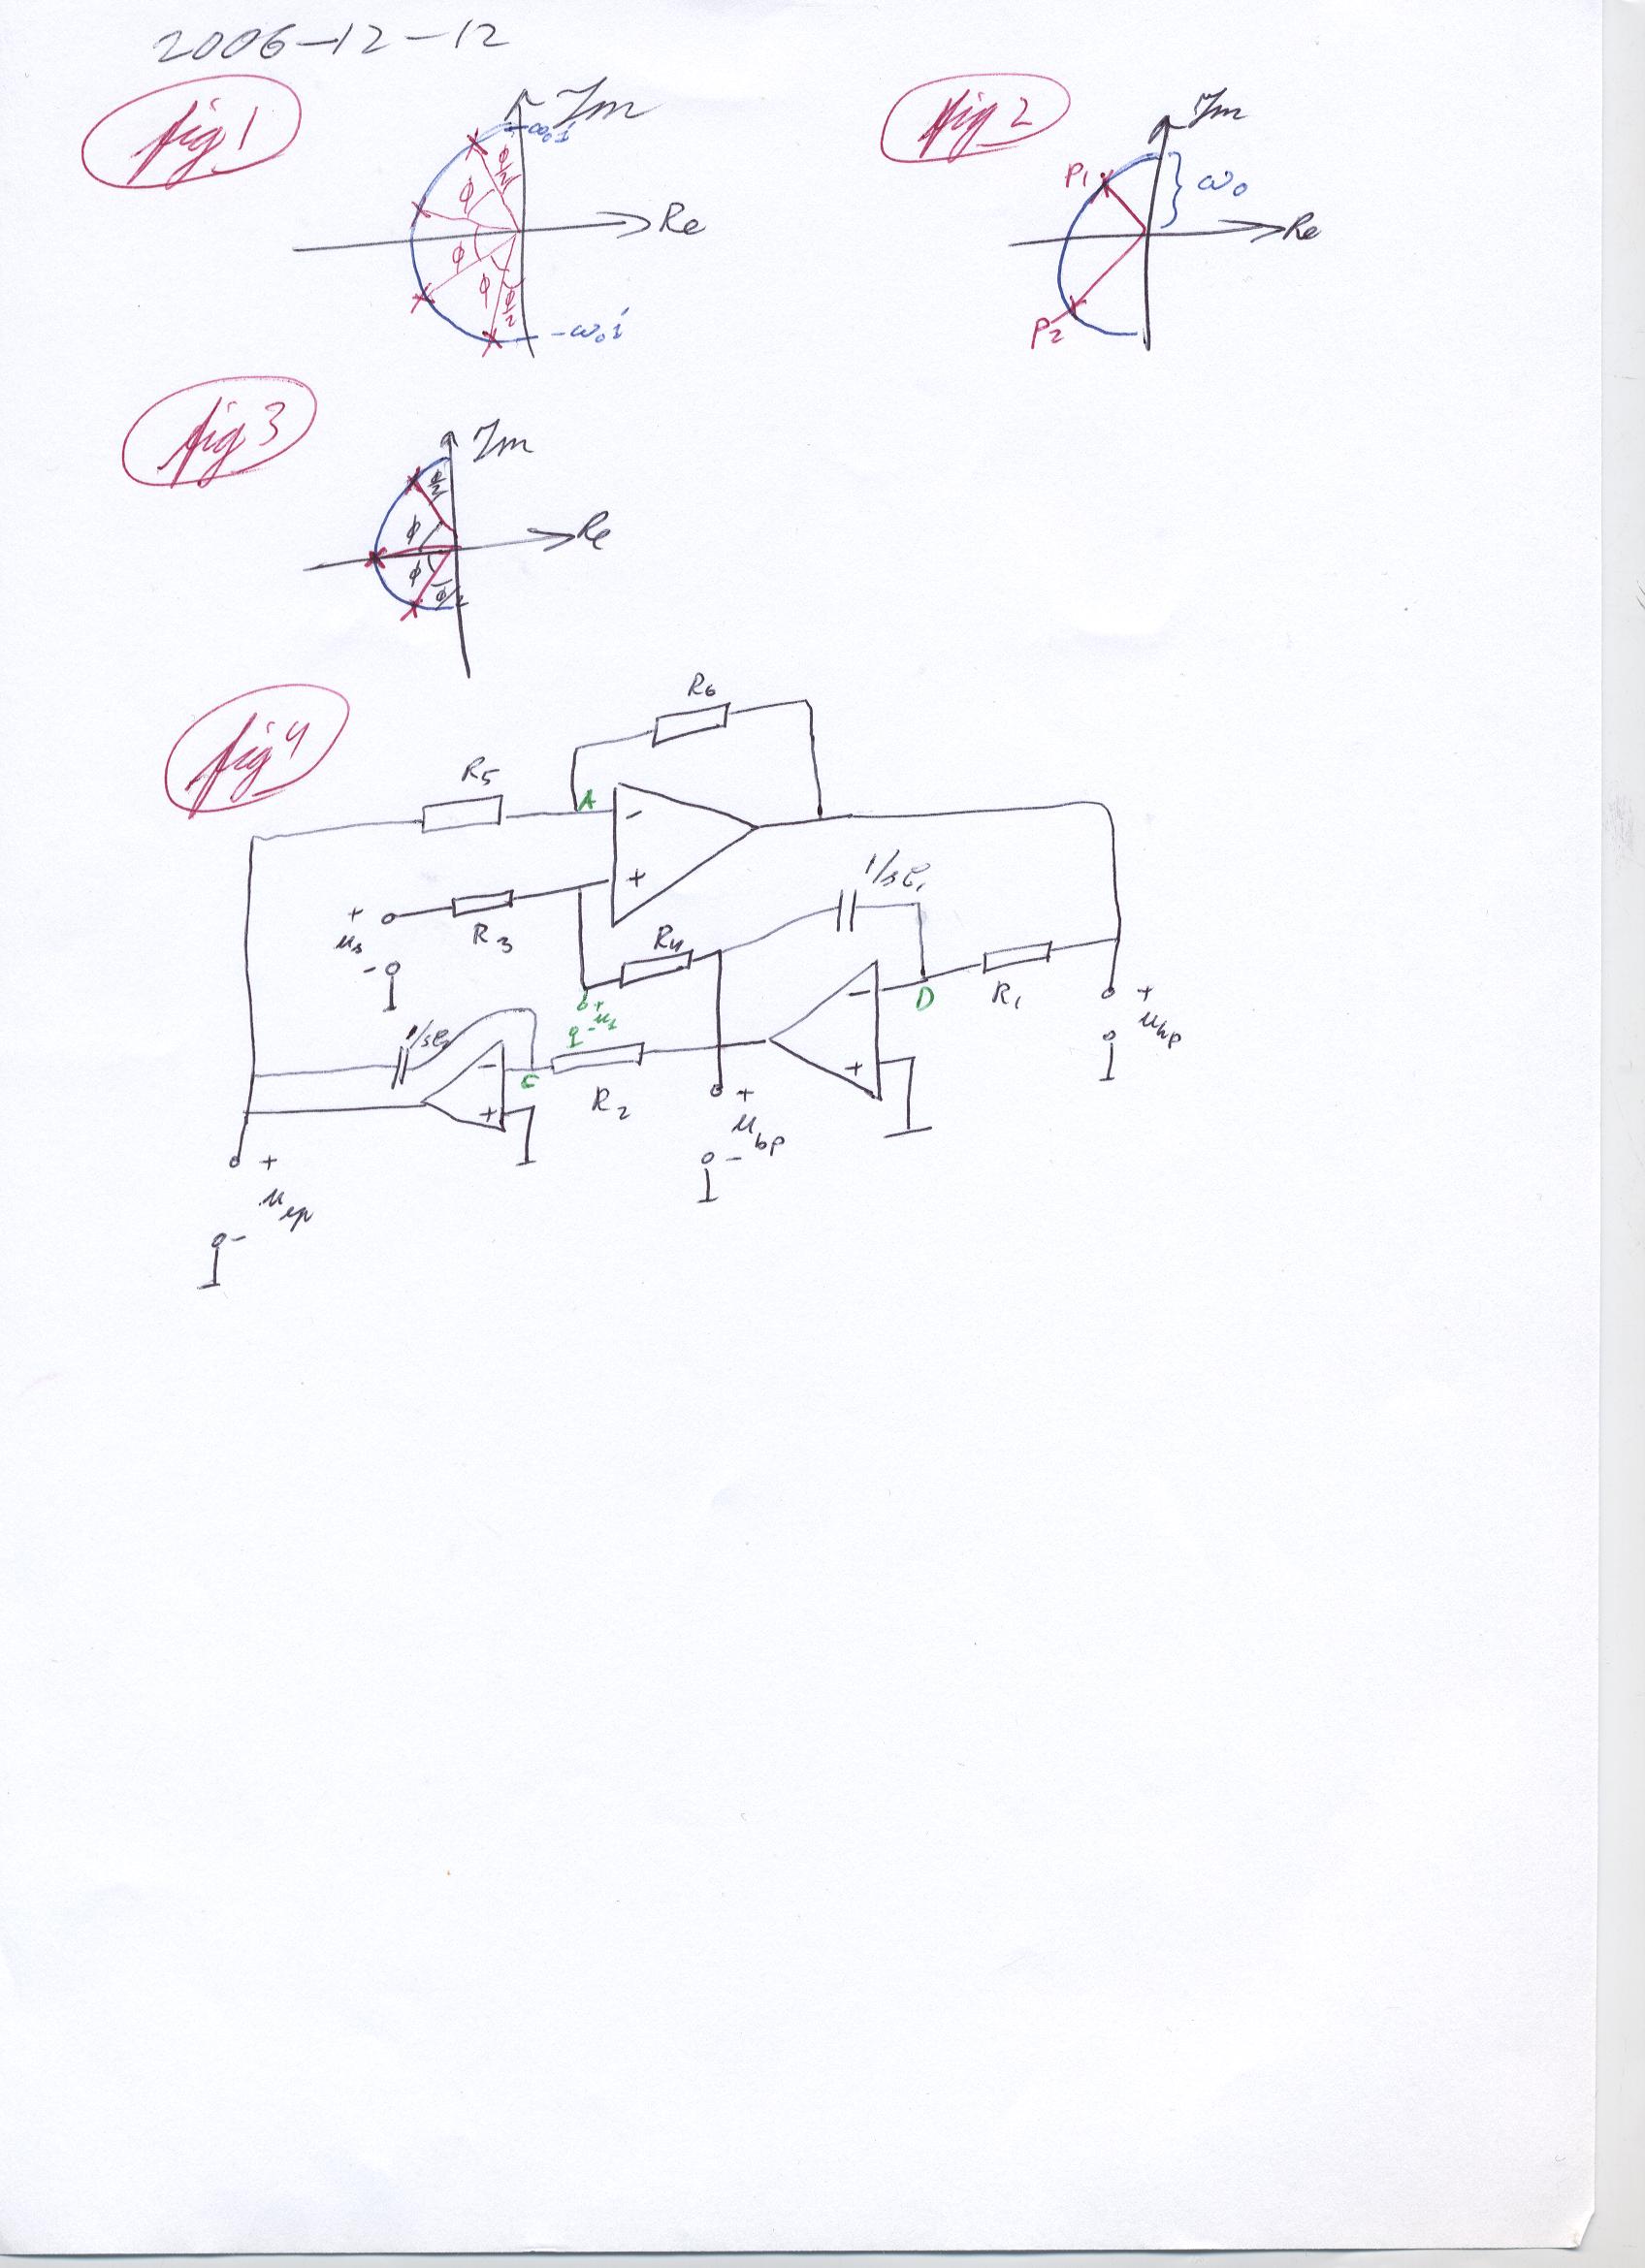 2006-12-12
fig 1
Im
ω₀i
ϕ/2
ϕ
Re
ϕ
ϕ
ϕ/2
-ω₀i
fig 2
Im
P₁
ω₀
Re
P₂
fig 3
Im
ϕ/2
Re
ϕ
ϕ
ϕ/2
fig 4
R₆
R₅
A
-
+
1/sC₁
+
u_s
-
R₃
R₄
-
D
R₁
+
u_hp
+
u₁
-
1/sC₂
-
C
R₂
+
+
u_bp
-
+
+
u_lp
-